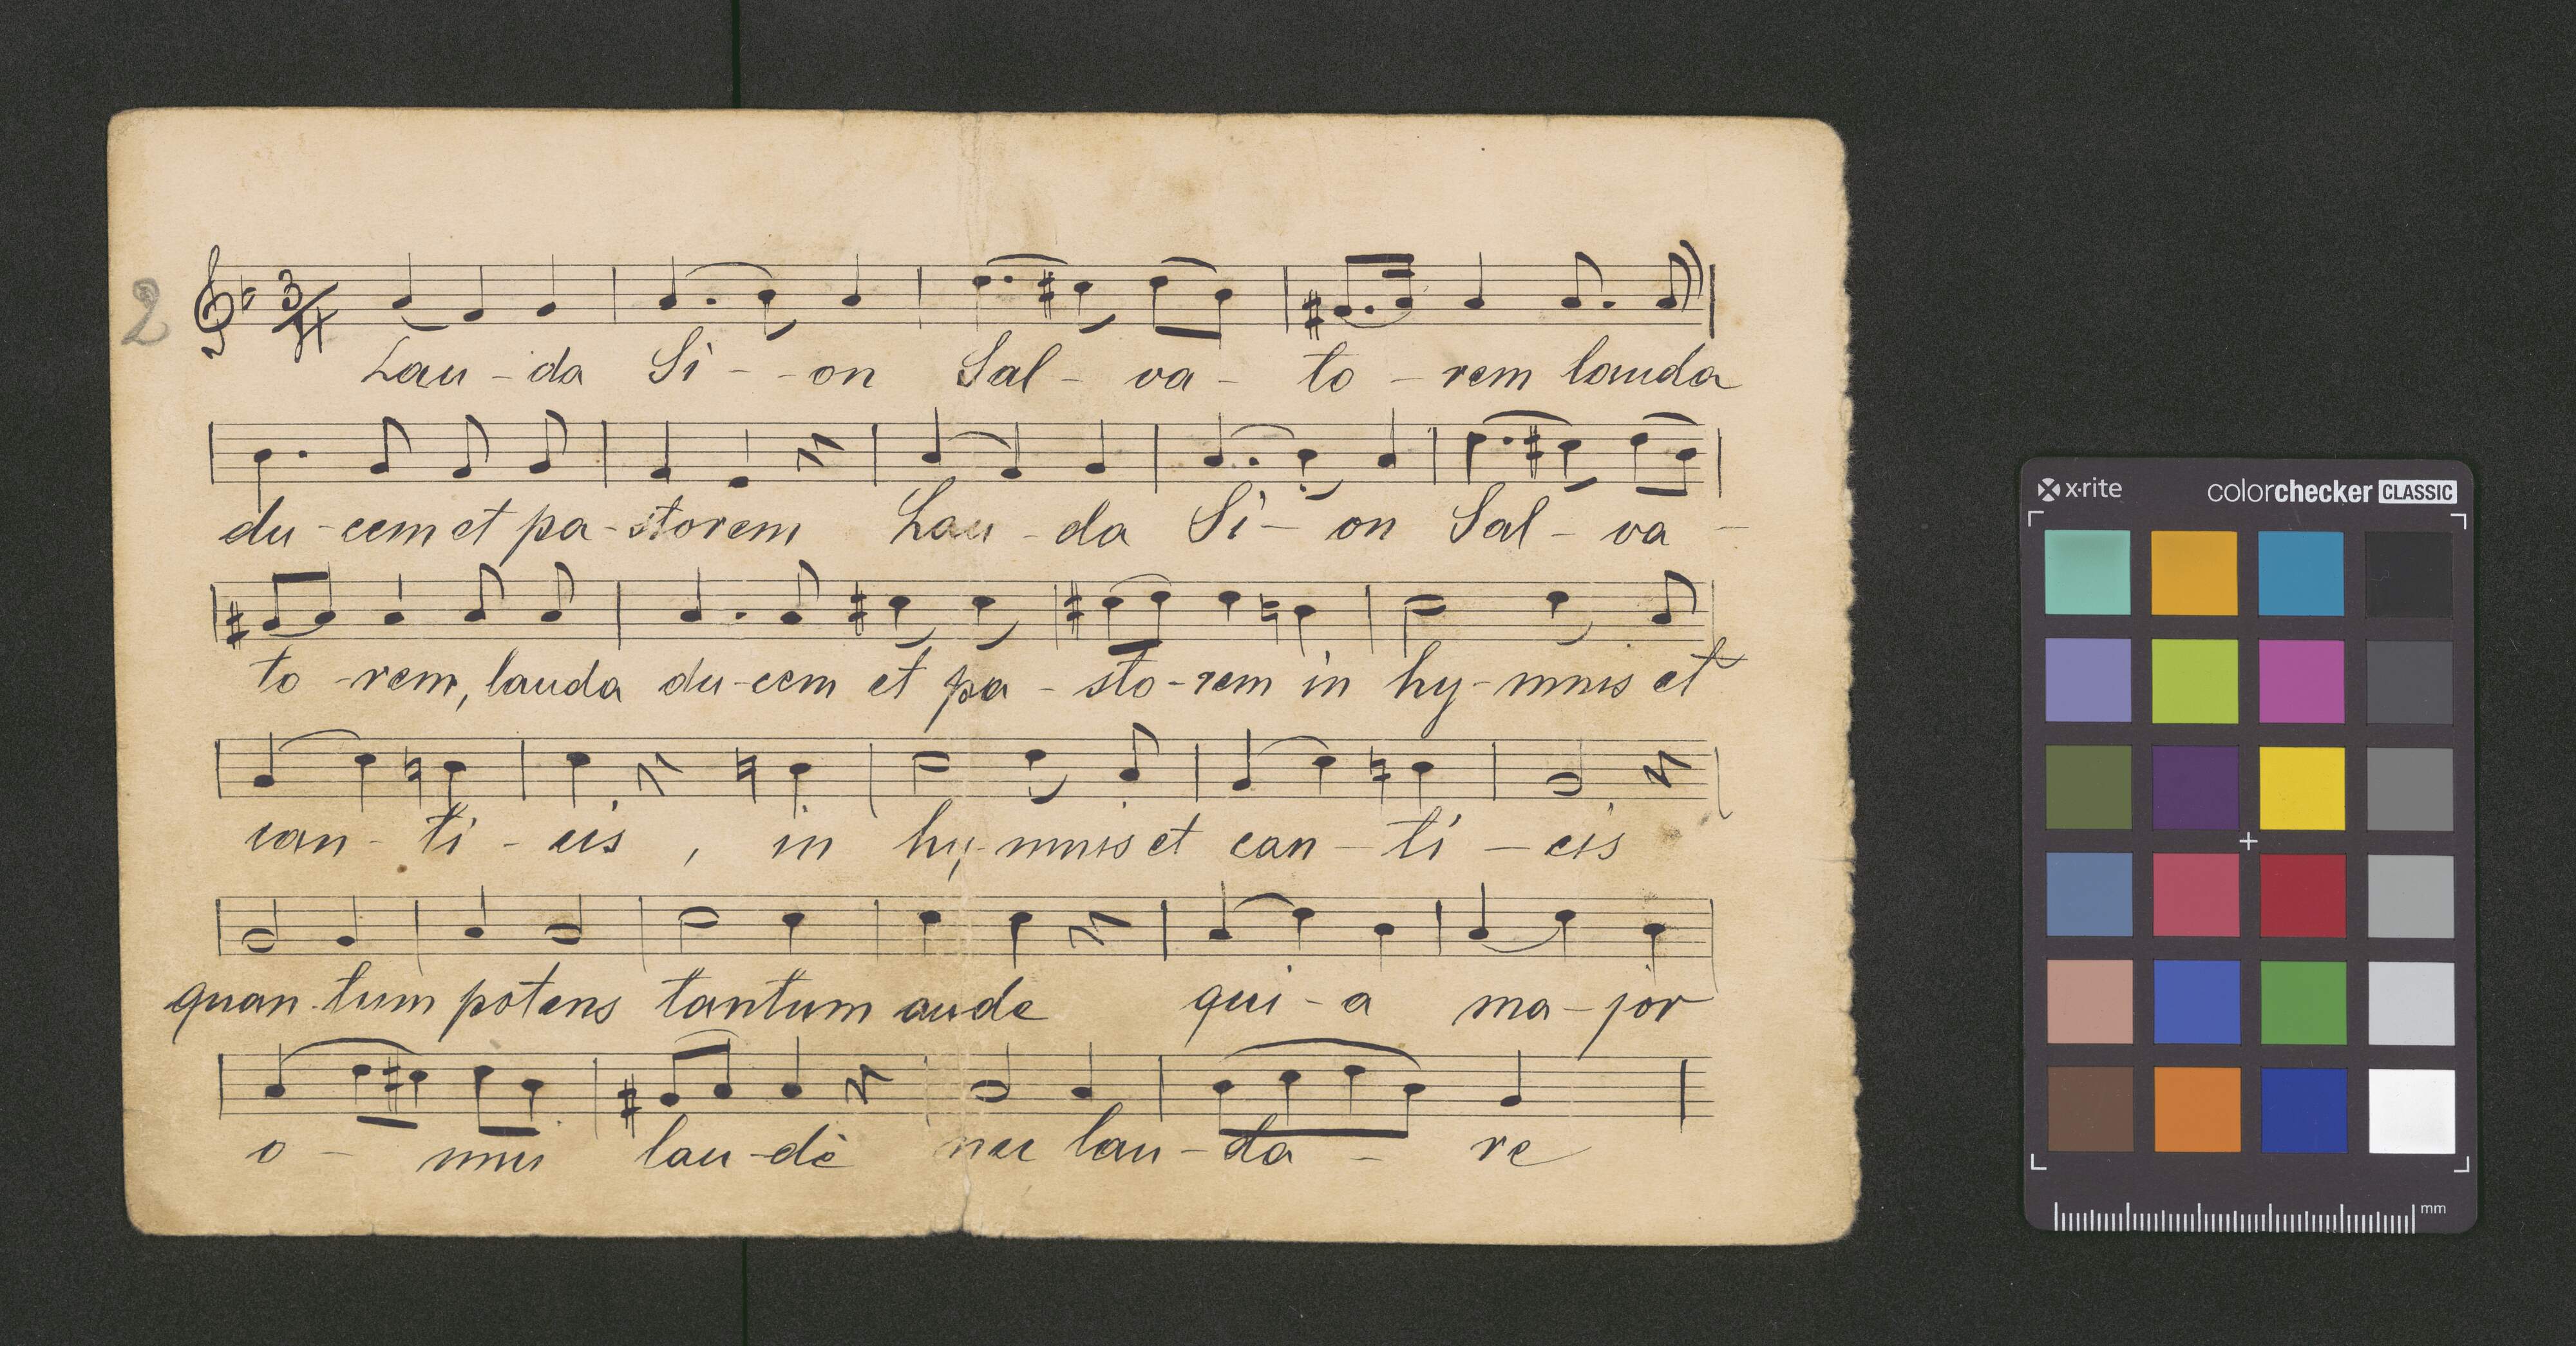 2
3/4
Lau - da Si - - on Sal - va - to - rem lauda
du - cem et pa - storem Lau - da Si - on Sal - va -
to - rem, lauda du - cem et pa - sto - rem in hy - mnis et
can - ti - cis , in hy - mnis et can - ti - cis
quan - tum potens tantum aude qui - a ma - jor
o - mni lau - dè nec lau - da - re
x·rite colorchecker CLASSIC
mm